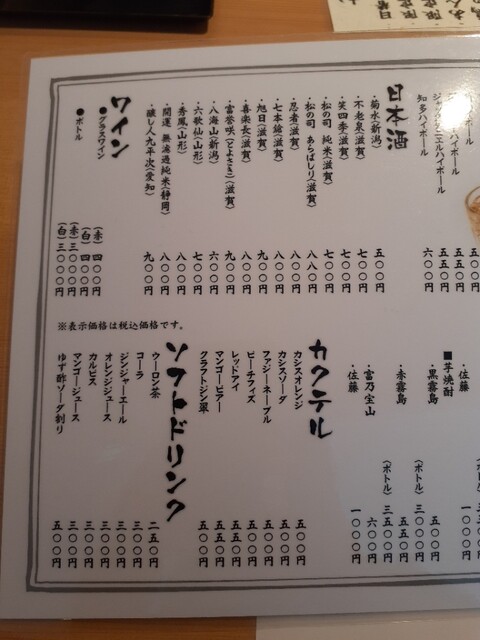 ハイボール
ジャックダニエルハイボール
五五〇円
知多ハイボール
六〇〇円
日本酒
・菊水(新潟)
五〇〇円
・不老泉(滋賀)
七〇〇円
・笑四季(滋賀)
七〇〇円
・松の司 純米(滋賀)
七〇〇円
・松の司 あらばしり(滋賀)
八〇〇円
・忍者(滋賀)
八〇〇円
・七本鎗(滋賀)
八〇〇円
・旭日(滋賀)
九〇〇円
・喜楽長(滋賀)
八〇〇円
・富誉咲(とよさき)(滋賀)
九〇〇円
・八海山(新潟)
六〇〇円
・六歌仙(山形)
七〇〇円
・秀鳳(山形)
八〇〇円
・開運 無濾過純米(静岡)
八〇〇円
・醸し人九平次(愛知)
九〇〇円
ワイン
●グラスワイン
(赤)四〇〇円
(白)四〇〇円
●ボトル
(赤)三〇〇〇円
(白)三〇〇〇円
※表示価格は税込価格です。
・佐藤
■芋焼酎
・黒霧島
五〇〇円
(ボトル)
三〇〇〇円
・赤霧島
五五〇円
(ボトル)
三五〇〇円
・富乃宝山
六〇〇円
・佐藤
一〇〇〇円
カクテル
カシスオレンジ
五〇〇円
カシスソーダ
五〇〇円
ファジーネーブル
五〇〇円
ピーチフィズ
五五〇円
レッドアイ
五五〇円
マンゴービアー
五五〇円
クラフトジン翠
五〇〇円
ソフトドリンク
ウーロン茶
二五〇円
コーラ
三〇〇円
ジンジャーエール
三〇〇円
オレンジジュース
三〇〇円
カルピス
三〇〇円
マンゴージュース
三〇〇円
ゆず酢ソーダ割り
五〇〇円